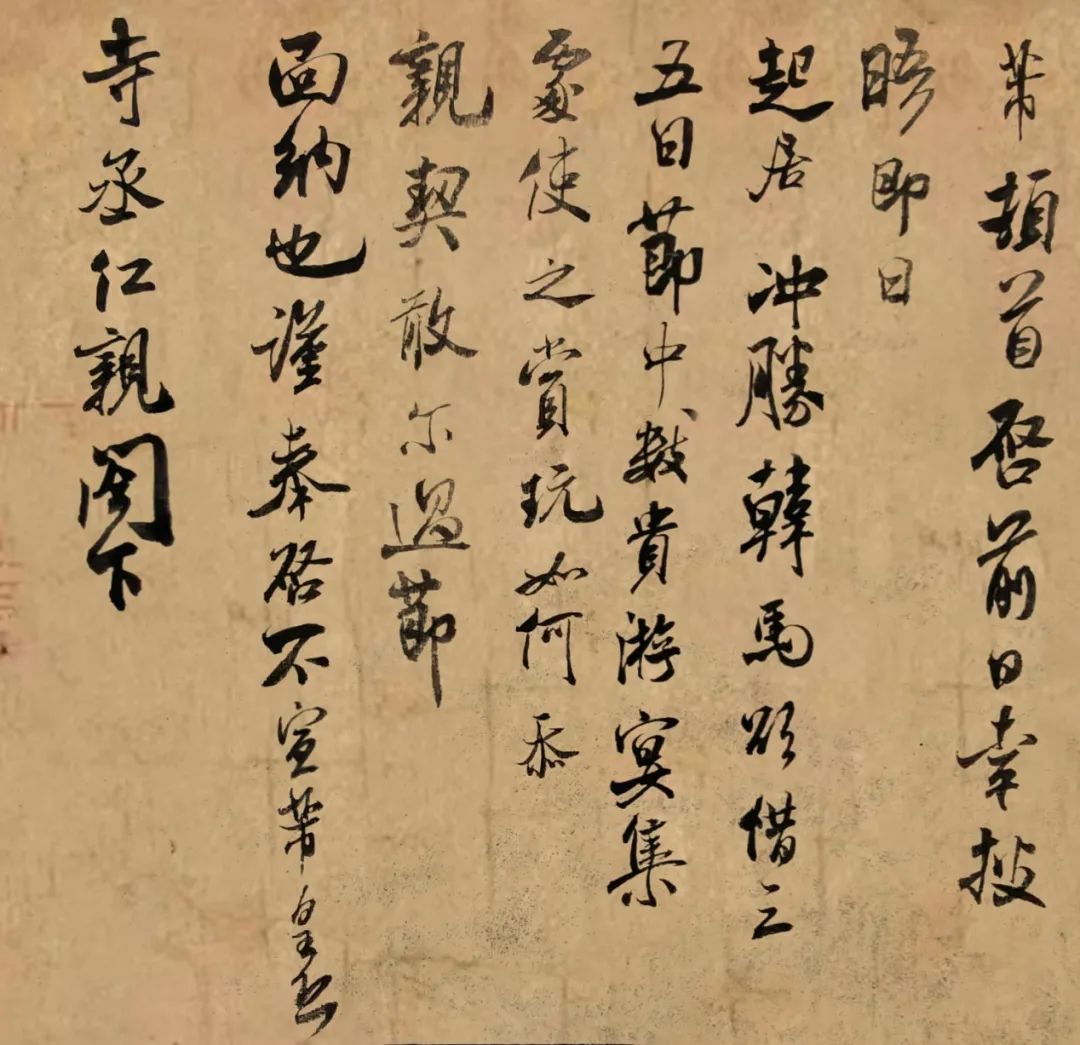 芾頓首啓前日幸披
晤即日
起居冲勝韓馬欲借三
五日節中數貴游冥集
處使之賞玩如何忝
親契敢尔過節
面納也謹奉啓不宣芾皇恐
寺丞仁親閣下